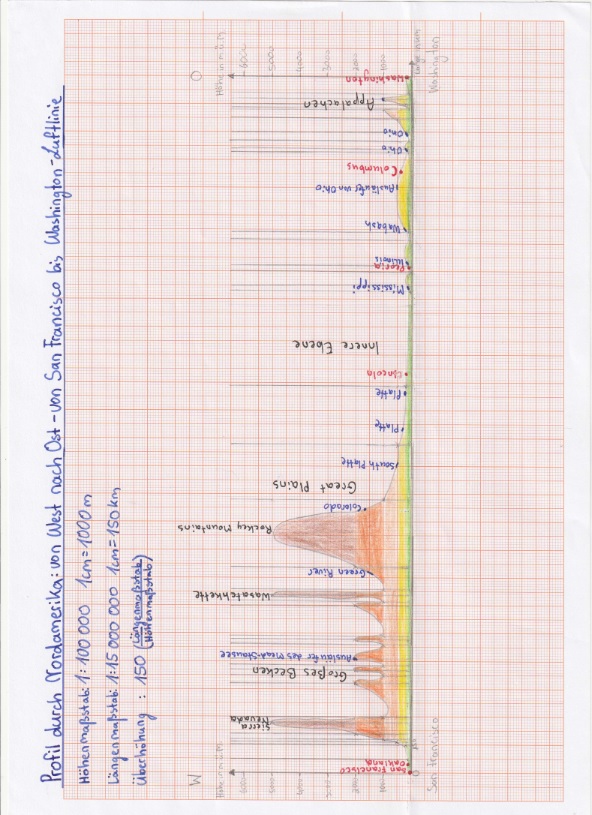 Profil durch Nordamerika: von West nach Ost - von San Francisco bis Washington - Luftlinie
Höhenmaßstab: 1: 100 000 1cm = 1000 m
Längenmaßstab: 1:15 000 000 1cm = 150 km
Überhöhung : 150 (Längenmaßstab/
Höhenmaßstab)
W
Höhe in m ü.M.
6000
5000
4000
3000
2000
1000
0
San Francisco
San Francisco
Oakland
Sierra
Nevada
Großes Becken
Ausläufer des Mead-Stausee
Wasatchkette
Green River
Rocky Mountains
Colorado
Great Plains
South Platte
Platte
Platte
Lincoln
Innere Ebene
Mississippi
Peoria
Illinois
Wabash
Ausläufer von Ohio
Columbus
Ohio
Ohio
Appalachen
Washington
O
Höhe in m ü.M.
6000
5000
4000
3000
2000
1000
0
Washington